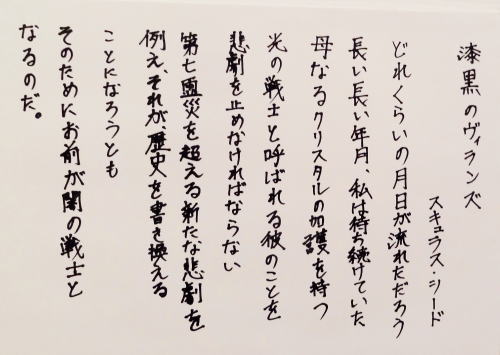 漆黒のヴィランズ
スキュラス・シード
どれくらいの月日が流れただろう
長い長い年月、私は待ち続けていた
母なるクリスタルの加護を持つ
光の戦士と呼ばれる彼のことを
悲劇を止めなければならない
第七霊災を超える新たな悲劇を
例え、それが、歴史を書き換える
ことになろうとも
そのためにお前が闇の戦士と
なるのだ。